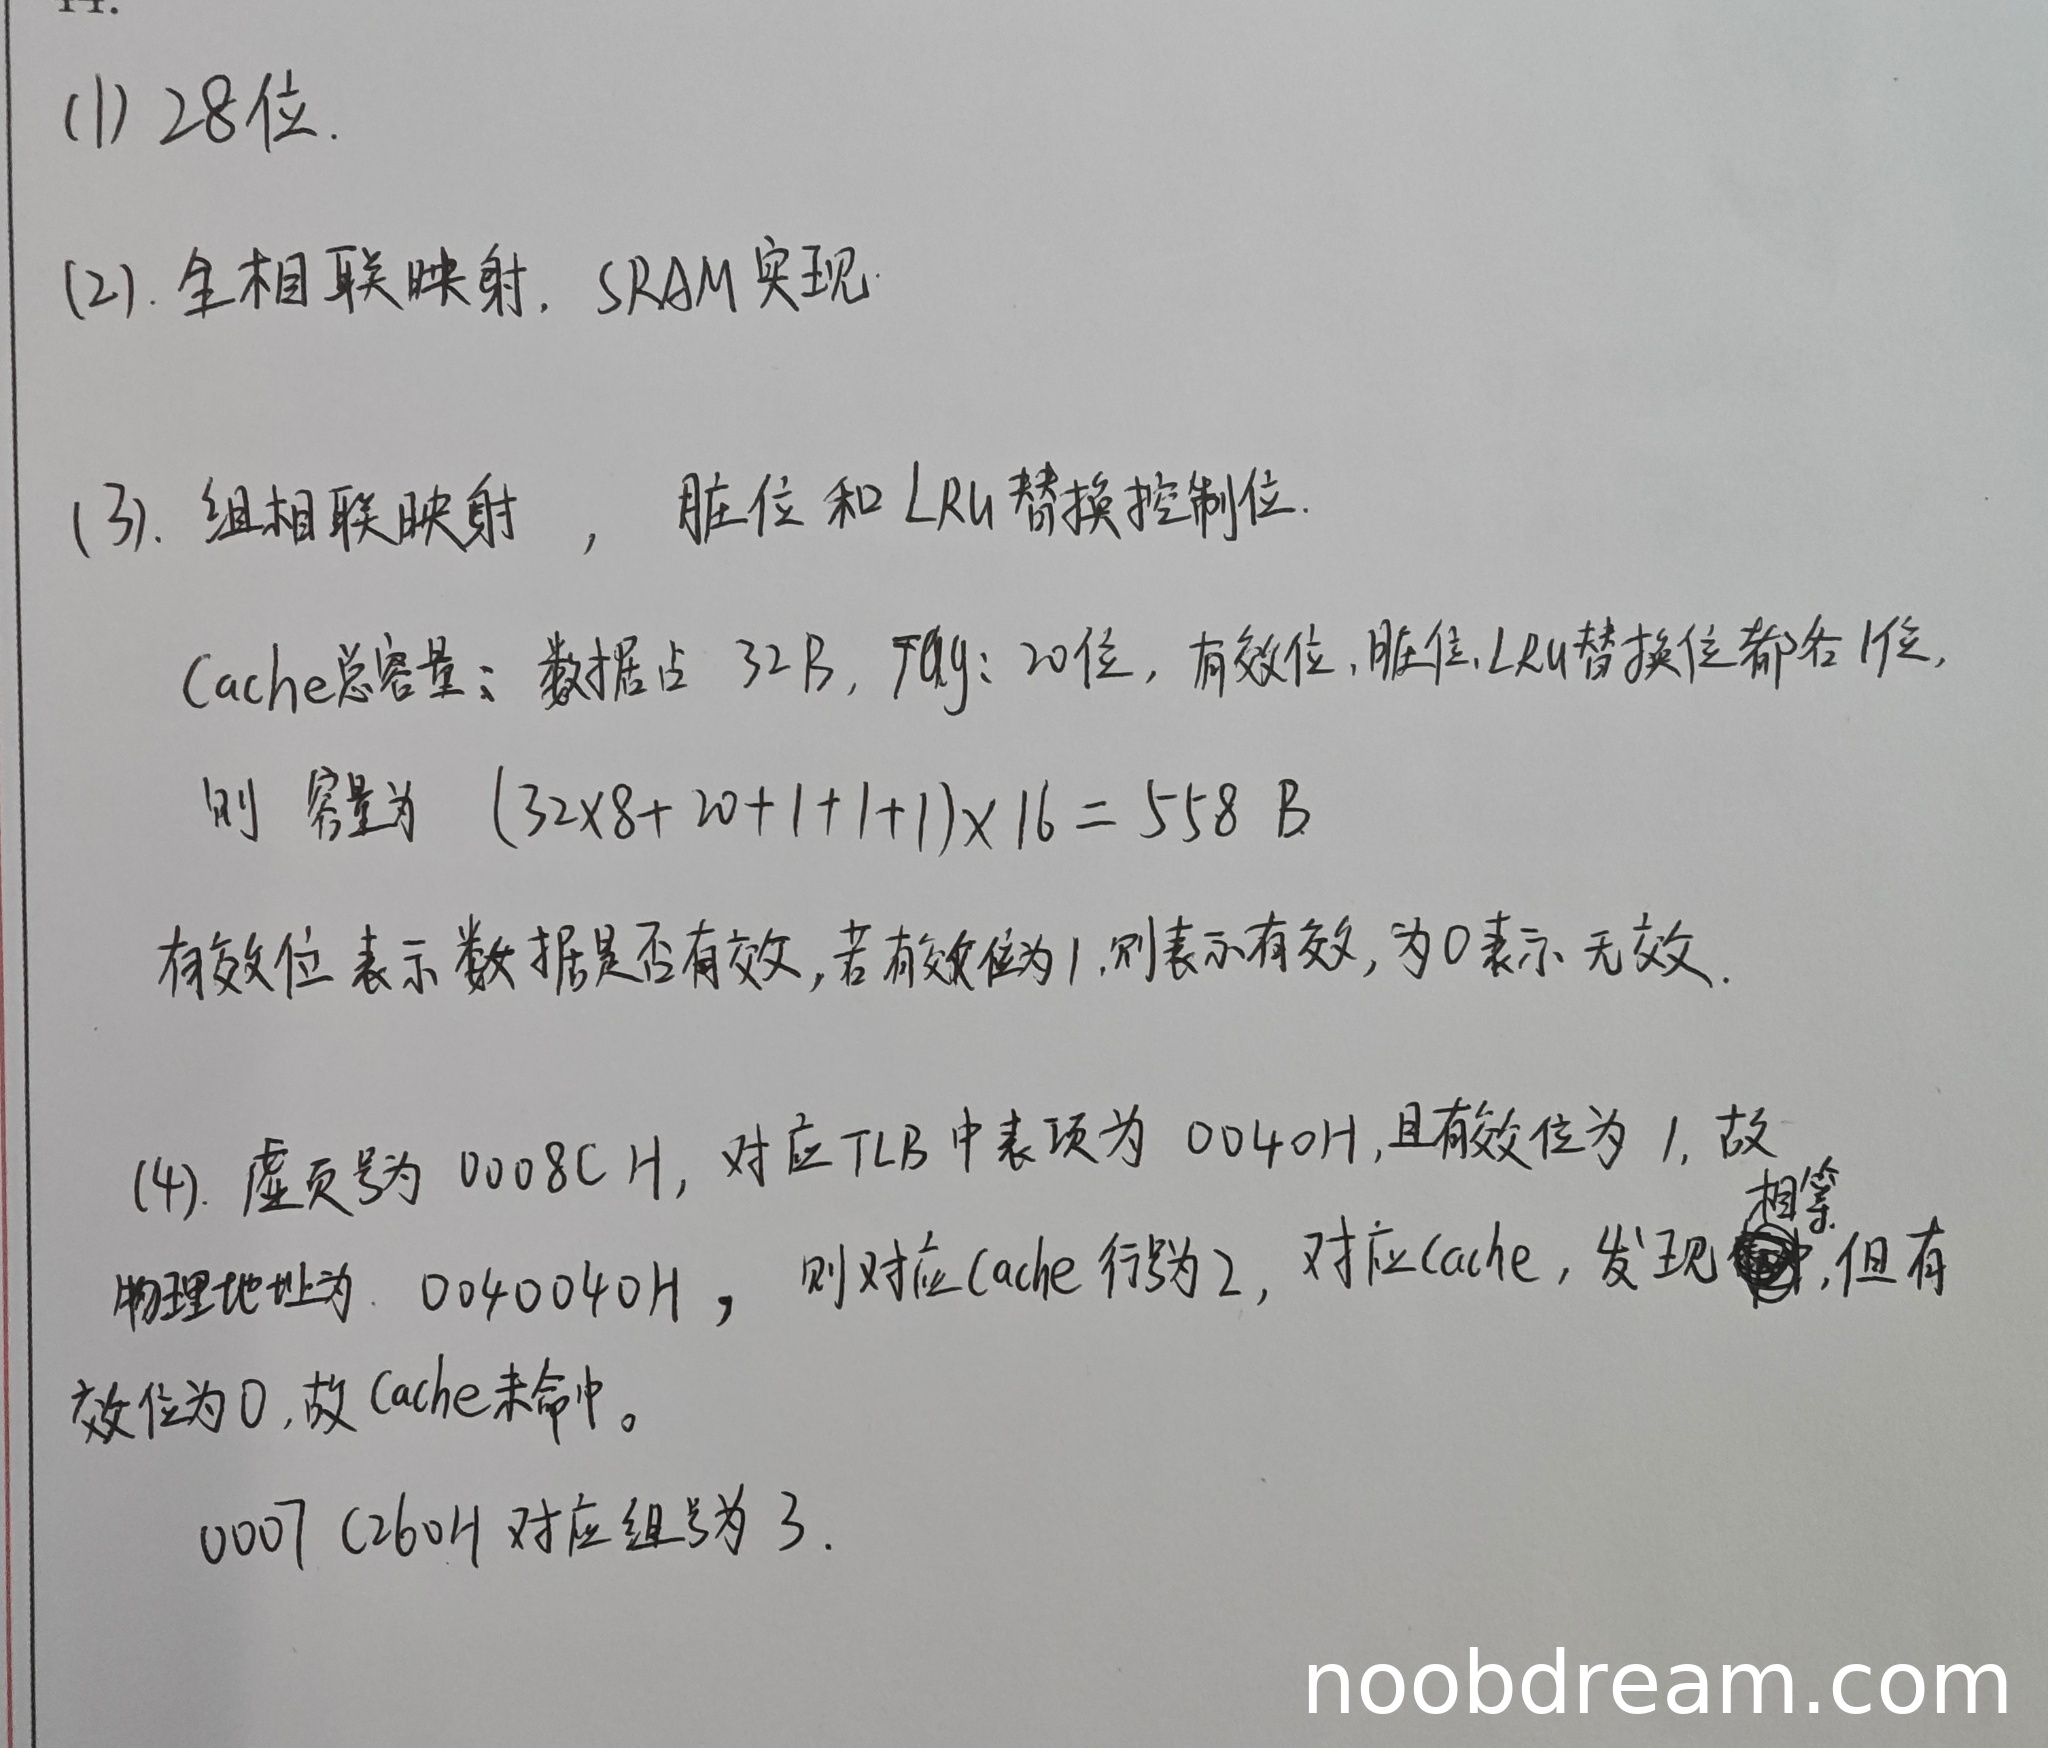 14.
(1) 28位.
(2). 全相联映射. SRAM实现.
(3). 组相联映射 , 脏位和LRU替换控制位.
Cache总容量: 数据占 32B, Tag: 20位, 有效位、脏位、LRU替换位都各1位,
则 容量为 (32×8+20+1+1+1)×16=558 B.
有效位表示数据是否有效,若有效位为1,则表示有效,为0表示无效.
(4). 虚页号为 0008C H, 对应TLB中表项为 0040H,且有效位为 1, 故
物理地址为 0040040H, 则对应Cache行号为2, 对应Cache, 发现相等,但有
效位为0,故Cache未命中。
0007 C260H 对应组号为 3.
noobdream.com